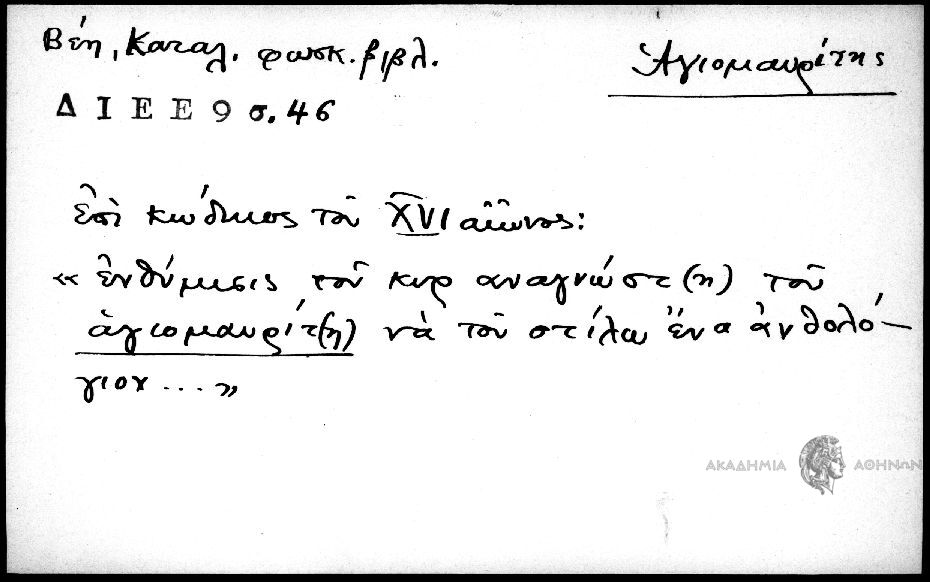 Βέη, Καταλ. φωσκ. βιβλ.
Ἁγιομαυρίτης
Δ Ι Ε Ε 9 σ. 46
ἐπὶ κώδικος τοῦ XVI αἰῶνος:
« ἐνθύμισις τοῦ κυρ αναγνώστ(η) τοῦ
ἁγιομαυρίτ(η) νὰ τοῦ στίλω ἕνα ἀνθολό-
γιον ... »
ΑΚΑΔΗΜΙΑ ΑΘΗΝΩΝ